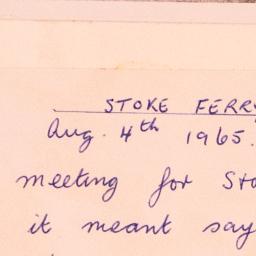 STOKE FERRY
Aug. 4th 1965.
meeting for Sto
it meant say